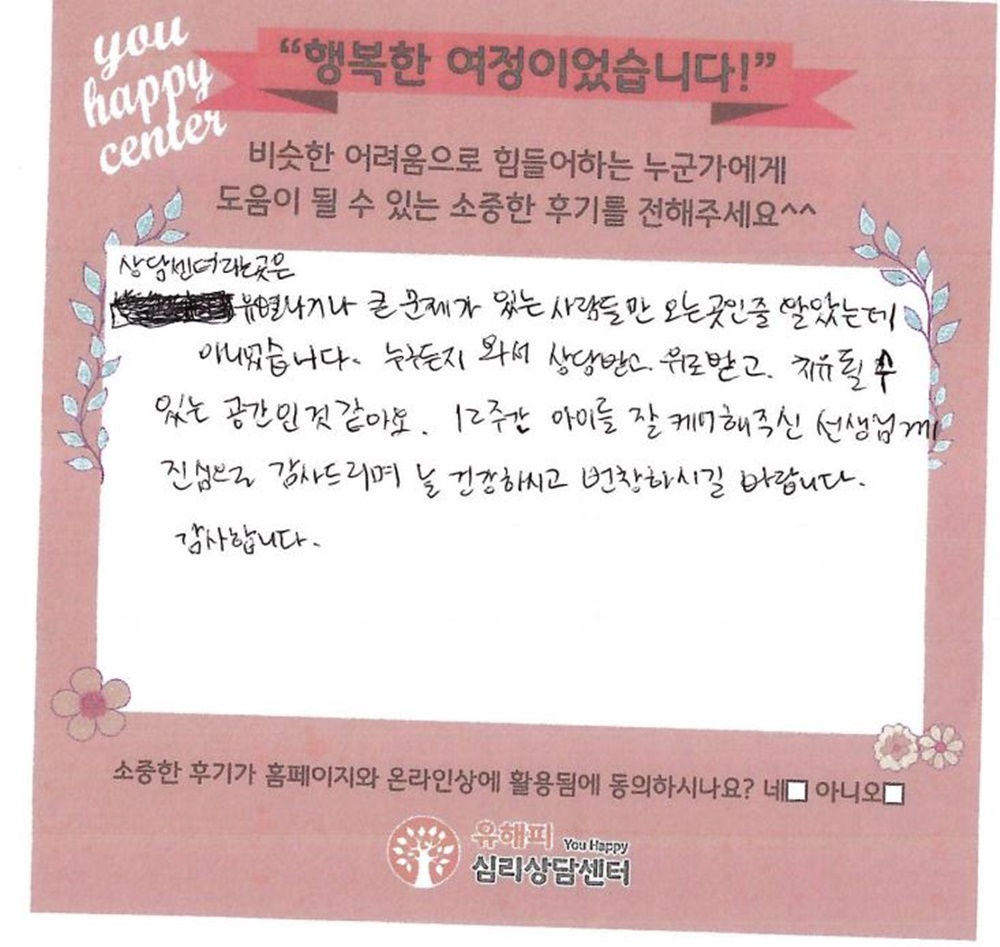 you
happy
center
“행복한 여정이었습니다!”
비슷한 어려움으로 힘들어하는 누군가에게
도움이 될 수 있는 소중한 후기를 전해주세요^^
상담센터라는곳은
유별나거나 큰 문제가 있는 사람들만 오는곳인줄 알았는데
아니었습니다. 누구든지 와서 상담받고 위로받고. 치유될 수
있는 공간인것 같아요. 12주간 아이를 잘 케어해주신 선생님께
진심으로 감사드리며 늘 건강하시고 번창하시길 바랍니다.
감사합니다.
소중한 후기가 홈페이지와 온라인상에 활용됨에 동의하시나요? 네 아니오
유해피 You Happy
심리상담센터